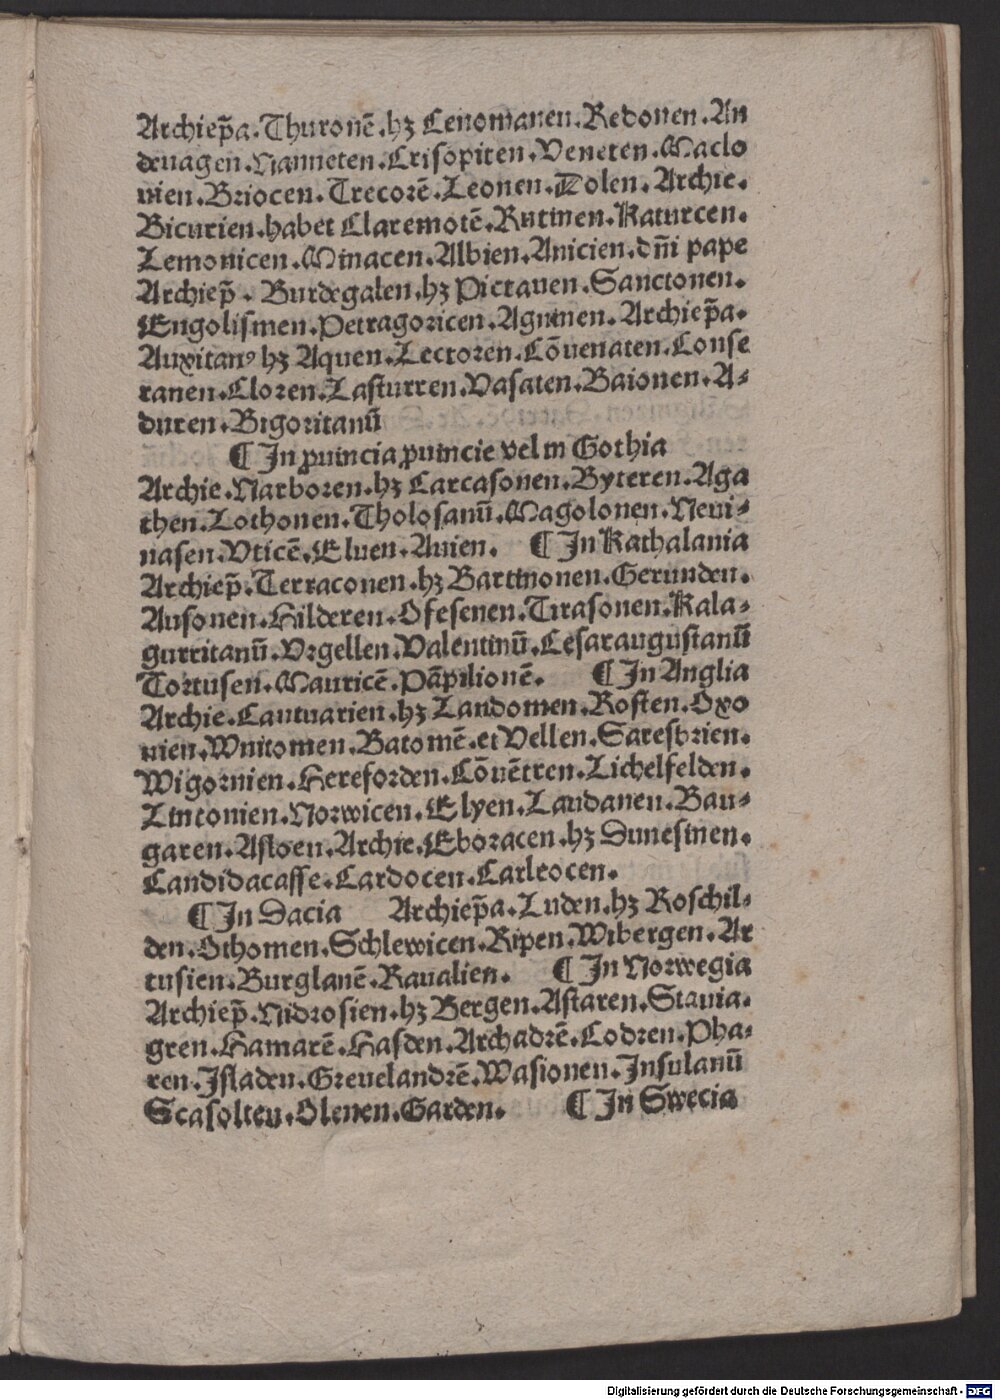 Archiep̃a.Thuronẽ.hꝫ Cenomanen.Redonen.An
deuagen.Nanneten.Crisopiten.Veneten.Maclo
uien.Briocen.Trecorẽ.Leonen.Dolen.Archie.
Bicurien.habet Claremotẽ.Rutinen.Katurcen.
Lemonicen.Minacen.Albien.Anicien.dñi pape
Archiep̃. Burdegalen.hꝫ Pictauen.Sanctonen.
Engolismen.Petragoricen.Agninen.Archiep̃a.
Auxitanꝰ hꝫ Aquen.Lectoren.Cõuenaten.Conse
ranen.Cloren.Lasturren.Vasaten.Baionen.A⸗
duren.Bigoritanũ
¶ In ꝓuincia ꝓuincie vel in Gothia
Archie.Narboren.hꝫ Carcasonen.Byteren.Aga
then.Lothonen.Tholosanũ.Magolonen.Neui⸗
nasen.Vticẽ.Eluen.Auien. ¶ In Kathalania
Archiep̃.Terraconen.hꝫ Bartinonen.Gerunden.
Ausonen.Hilderen.Ofesenen.Tirasonen.Kala⸗
gurritanũ.Vrgellen.Valentinũ.Cesaraugustanũ
Tortusen.Mauricẽ.Pãpilionẽ. ¶ In Anglia
Archie.Cantuarien.hꝫ Landomen.Rosten.Oxo
nien.Wnitomen.Batomẽ.et Vellen.Saresbrien.
Wigornien.Hereforden.Cõuẽtren.Lichelfelden.
Lintonien.Norwicen.Elyen.Landanen.Bau⸗
garen.Asloen.Archie.Eboracen.hꝫ Dunesinen.
Candidacasse.Cardocen.Carleocen.
¶ In Dacia Archiep̃a.Luden.hꝫ Roschil⸗
den.Othomen.Schlewicen.Ripen.Wibergen.Ar
tusien.Burglanẽ.Raualien. ¶ In Norwegia
Archiep̃.Nidrosien.hꝫ Bergen.Astaren.Stauia.
gren.Hamarẽ.Hasden.Archadrẽ.Codren.Pha⸗
ren.Isladen.Greuelandrẽ.Wasionen.Insulanũ
Scasolten.Olenen.Garden. ¶ In Swecia
Digitalisierung gefördert durch die Deutsche Forschungsgemeinschaft - DFG